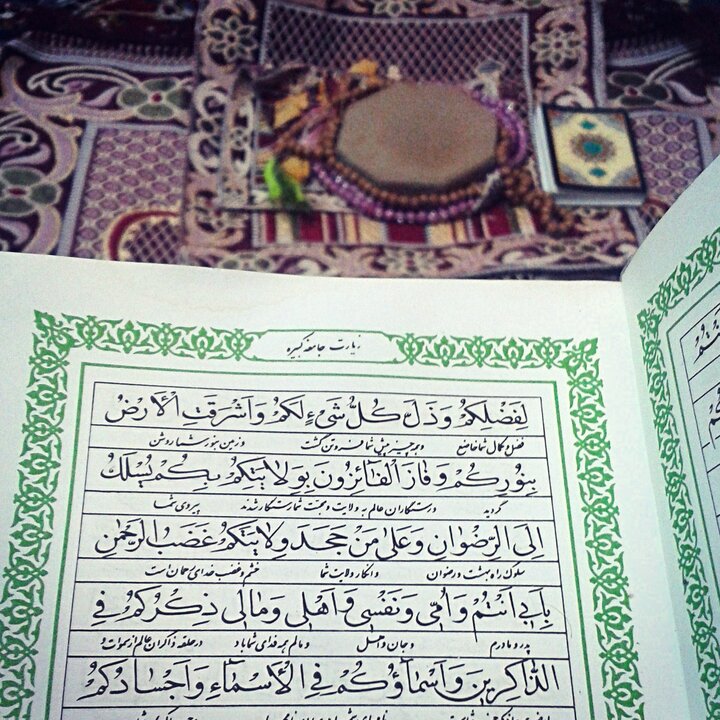 زیارت جامعه کبیره
لِفَضْلِكُمْ وَذَلَّ كُلُّ شَیْءٍ لَكُمْ وَاَشْرَقَتِ الْاَرْضُ
فضل و کمال شما خاضع و هر چیز پیش شما فروتن گشت و زمین بنور شما روشن
بِنُورِكُمْ وَفَازَ الْفَائِزُونَ بِوِلَایَتِكُمْ بِكُمْ یُسْلَكُ
گردید و رستگاران عالم به ولایت و محبت شما رستگار شدند پیروی شما
اِلَی الرِّضْوَانِ وَعَلَی مَنْ جَحَدَ وِلَایَتَكُمْ غَضَبُ الرَّحْمٰنِ
سلوک راه بهشت و رضوان و انکار ولایت شما خشم و غضب خدای رحمان است
بِاَبِی اَنْتُمْ وَاُمِّی وَنَفْسِی وَاَهْلِی وَمَالِی ذِكْرُكُمْ فِی
پدر و مادرم و جان و اهل و مالم همه فدای شما باد در حلقه ذاکران عالم از سموات و
الذَّاكِرِینَ وَاَسْمَاؤُكُمْ فِی الْاَسْمَاءِ وَاَجْسَادُكُمْ